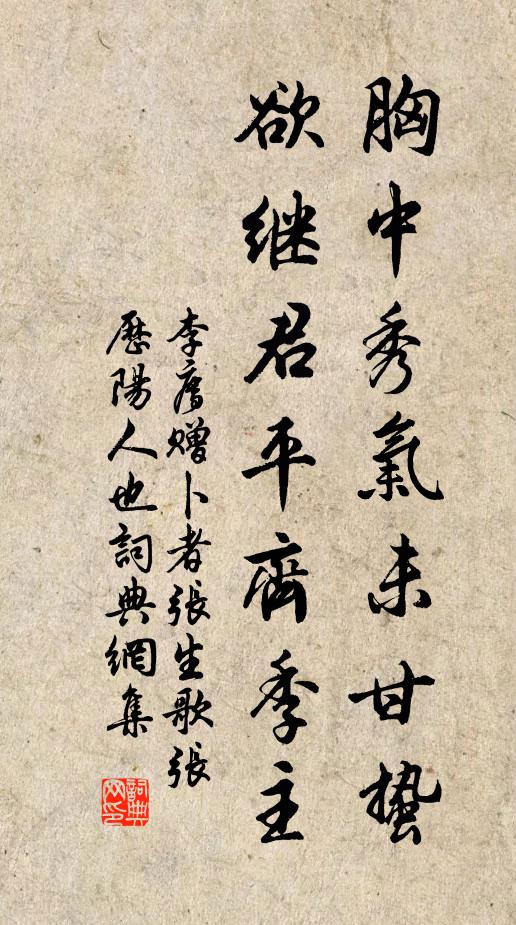 胸中秀氣未甘蟄
欲继君平齊季主
李廌赠卜者張生歌張
歷陽人也詞典網集
詞典网印